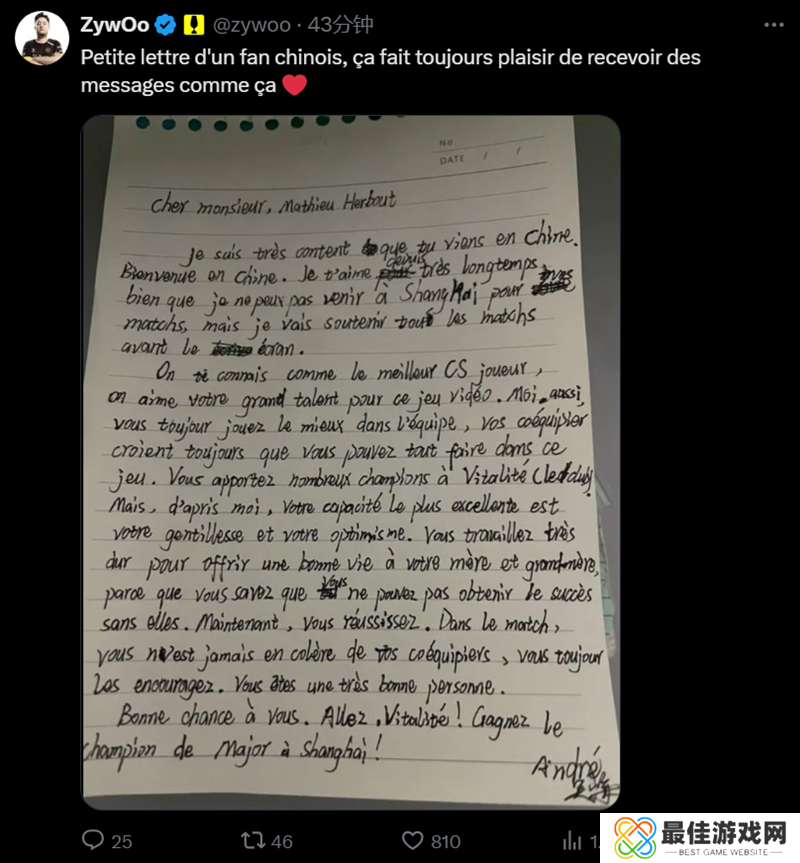 ZywOo @zywoo · 43分钟
Petite lettre d'un fan chinois, ça fait toujours plaisir de recevoir des
messages comme ça ❤️
No
DATE / /
Cher monsieur, Mathieu Herbout
Je suis très content que tu viens en Chine.
Bienvenue en Chine. Je t'aime depuis très longtemps,
bien que je ne peux pas venir à ShangHai pour
matchs, mais je vais soutenir tout les matchs
avant le écran.
On te connais comme le meilleur CS joueur,
on aime votre grand talent pour ce jeu vidéo. Moi, aussi,
vous toujour jouez le mieux dans l'équipe, vos coéquipier
croient toujours que vous pouvez tout faire dans ce
jeu. Vous apportez nombreux champions à Vitalité (le club).
Mais, d'apris moi, votre capacité le plus excellente est
votre gentillesse et votre optimisme. Vous travaillez très
dur pour offrir une bonne vie à votre mère et grand-mère,
parce que vous savez que vous ne pouvez pas obtenir le succès
sans elles. Maintenant, vous réussissez. Dans le match,
vous n'est jamais en colère de vos coéquipiers, vous toujour
les encouragez. Vous êtes une très bonne personne.
Bonne chance à vous. Allez, Vitalité! Gagnez le
champion de Major à Shanghai!
André
25 46 810 1.
最佳游戏网
BEST GAME WEBSITE